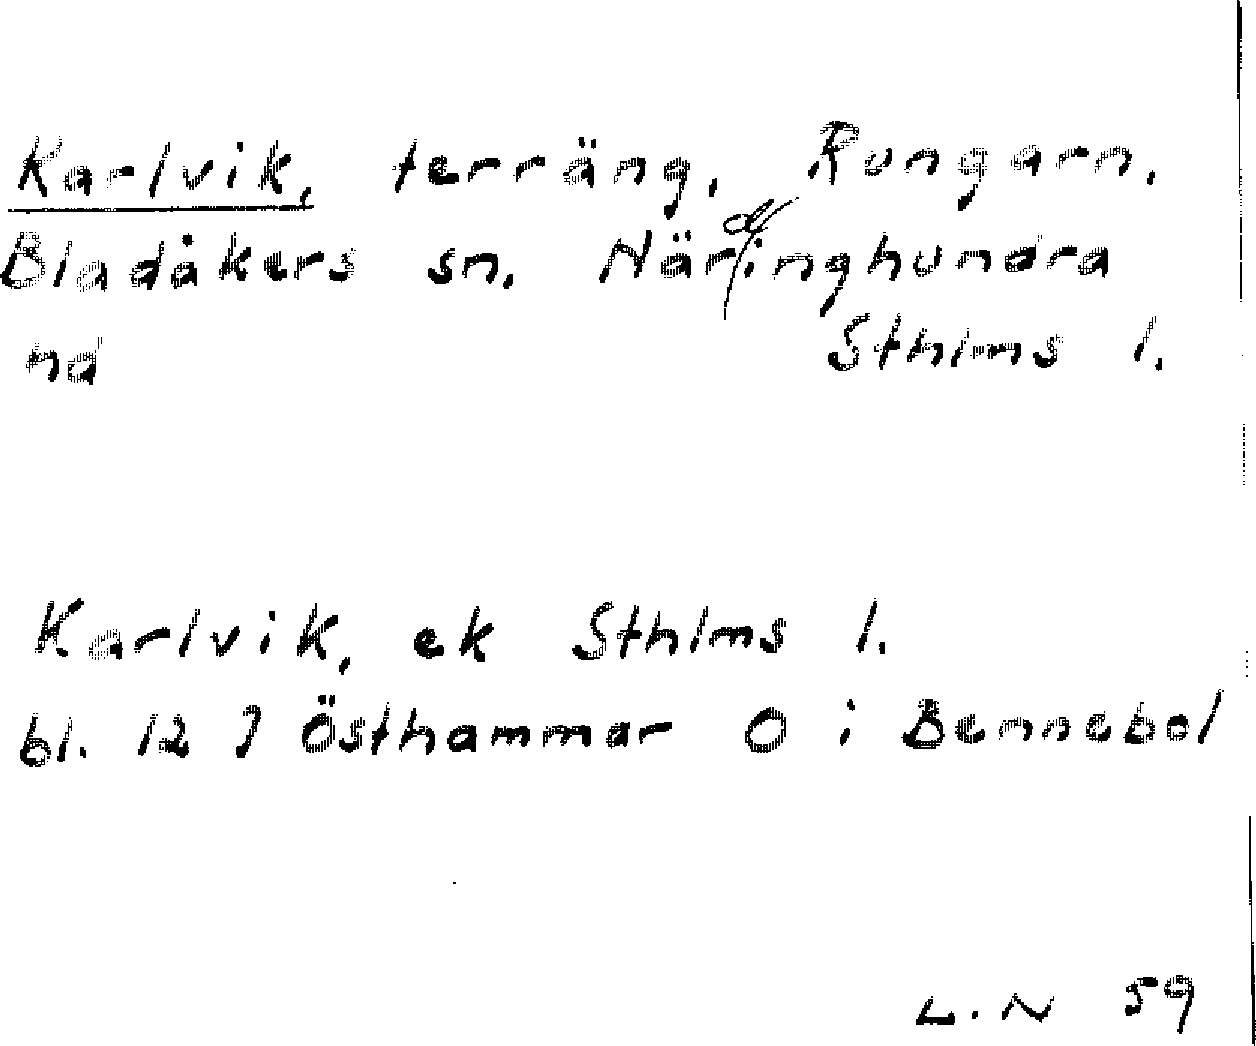 Karlvik, terräng, Rungarn.
Bladåkers sn. Näringhundra
hd Sthlms l.
Karlvik, ek Sthlms l.
bl. 12 J Östhammar O i Bennebol
L.N 59